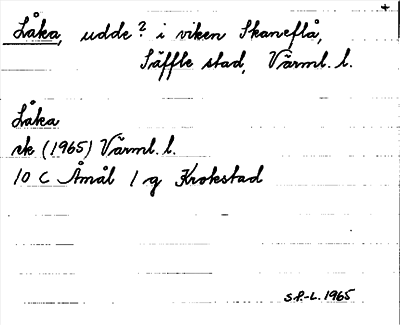 Låka, udde? i viken Skaneflå,
Säffle stad, Värml. l.
Låka
rk (1965) Värml. l.
10 C Åmål 1 g Krokstad
S.P.-L. 1965